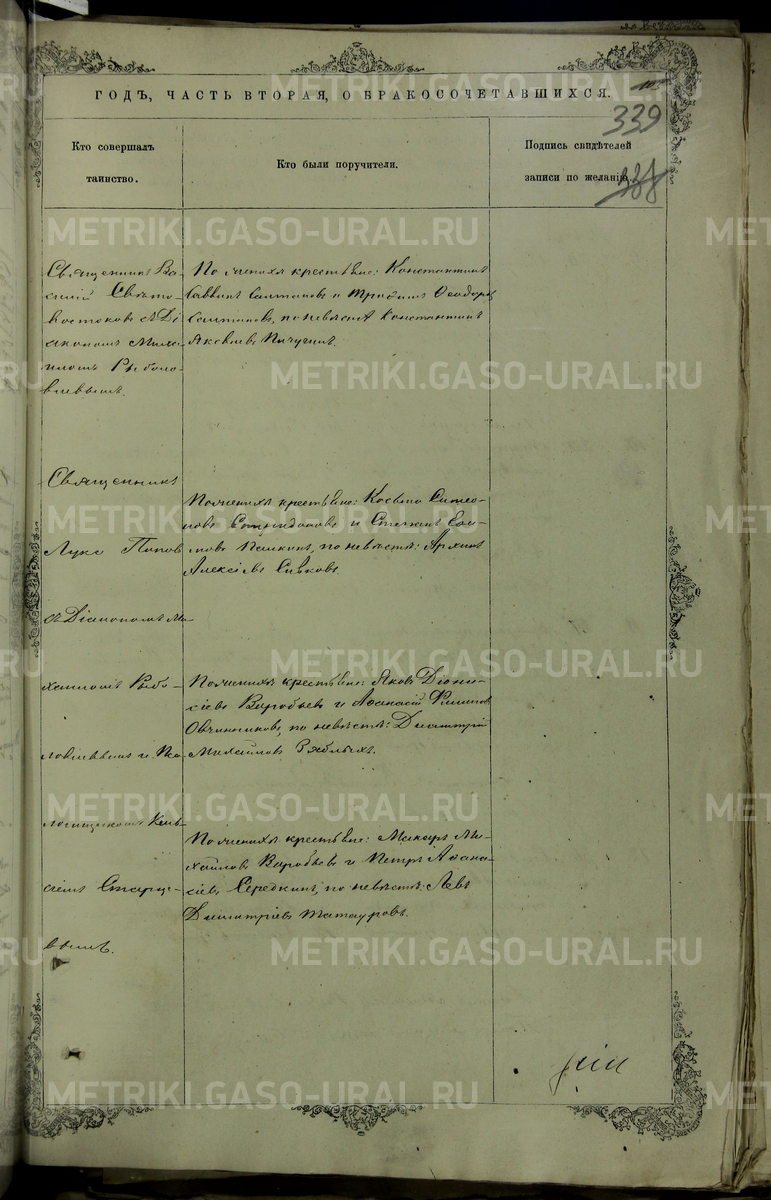 ГОДЪ, ЧАСТЬ ВТОРАЯ, О БРАКОСОЧЕТАВШИХСЯ.
339
338
Кто совершалъ
таинство.
Кто были поручители.
Подпись свидѣтелей
записи по желанію.
Священникъ Ва-
силій Свято-
востоковъ съ Ді
акономъ Миха-
иломъ Рыболо-
влевымъ.
По женихѣ крестьяне: Константинъ
Саввинъ Салтановъ и Ѳеодоръ
Салтановъ, по невѣстѣ Константинъ
Яковлевъ Пичугинъ.
Священникъ
Лука Поповъ
съ Діакономъ Ми-
хаиломъ Рыбо-
ловлевымъ и Пса-
ломщикомъ
Старце-
вымъ.
По женихѣ крестьяне: Косьма Симео-
новъ Спиридоновъ и Стефанъ
Пешкинъ, по невѣстѣ: Архипъ
Алексѣевъ Сивковъ.
По женихѣ крестьяне: Яковъ Діони-
сіевъ Воробьевъ и Аѳанасій Филиповъ
Овчинниковъ, по невѣстѣ: Димитрій
Михайловъ Зяблыхъ.
По женихѣ крестьяне: Макаръ Ми-
хайловъ Воробьевъ и Петръ Аѳана-
сіевъ Середкинъ, по невѣстѣ: Левъ
Димитріевъ Татауровъ.
METRIKI.GASO-URAL.RU